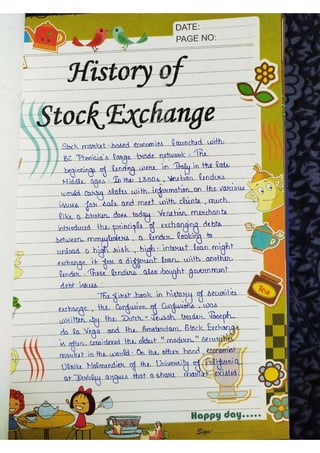 DATE:
PAGE NO:
History of
Stock Exchange
Stock market-based economies launched with
BC Phonicia's large trade network. The
beginnings of lending were in Italy in the late
Middle ages. In the 1300s, Venetian lenders
would carry slates with information on the various
issues for sale and meet with clients, much
like a broker does today. Venetian merchants
introduced the principle of exchanging debts
between moneylenders, a lender looking to
unload a high risk, high-interest loan might
exchange it for a different loan with another
lender. These lenders also bought government
debt issues.
The first book in history of securities
exchange, the Confusion of Confusions, was
written by the Dutch-Jewish trader Joseph
de la Vega and the Amsterdam Stock Exchange
is often considered the oldest "modern" securities
market in the world. On the other hand, economist
Ulrike Malmendier of the University of California
at Berkeley argues that a share market existed
Tea
Happy day.....
Sign: